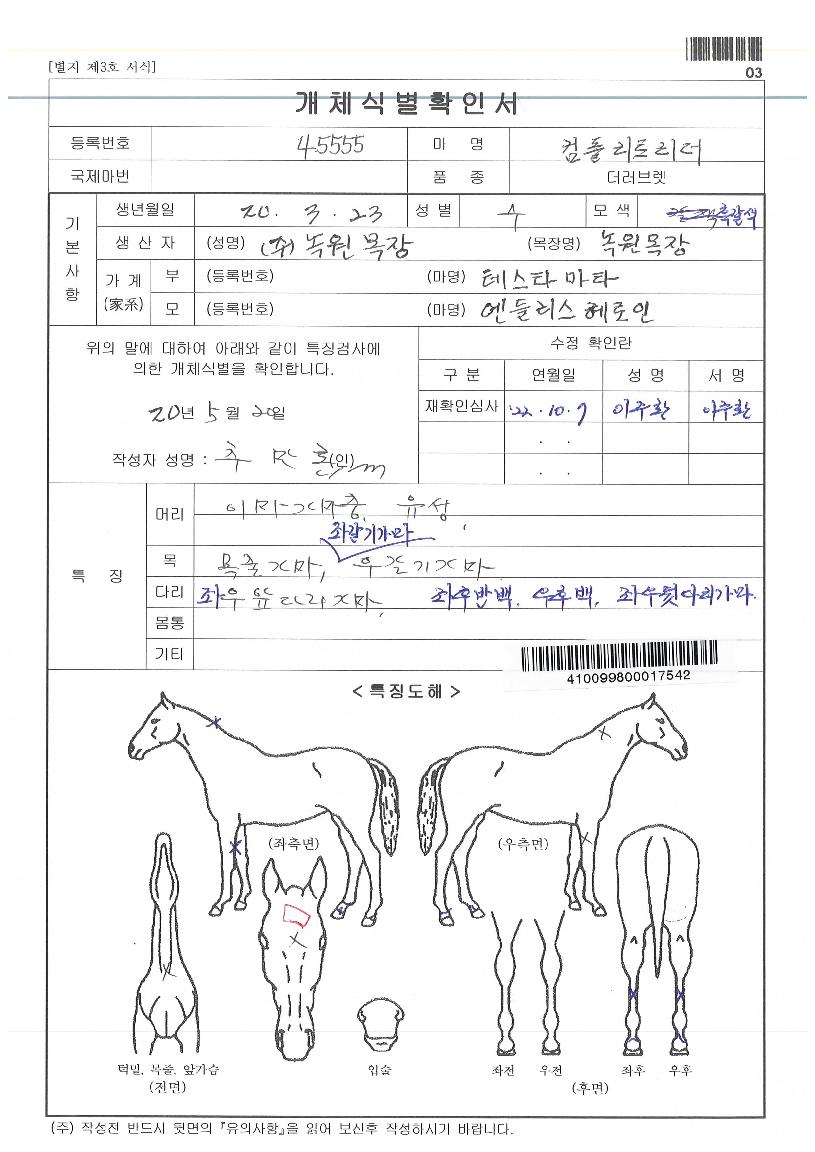 [별지 제3호 서식]
03
개체식별확인서
등록번호 45555 마 명 컴플리트리더
국제마번 품 종 더러브렛
기본사항
생년월일 20. 3. 23 성 별 수 모 색 흑갈색
생 산 자 (성명) (주)녹원목장 (목장명) 녹원목장
가 계 (家系)
부 (등록번호) (마명) 테스타마타
모 (등록번호) (마명) 엔들리스헤로인
위의 말에 대하여 아래와 같이 특징검사에
의한 개체식별을 확인합니다.
20년 5월 20일
작성자 성명 : (인)
수정 확인란
구 분 연월일 성 명 서 명
재확인심사 '22.10.7 이주환 이주환
. .
. .
특 징
머리 이마가마중, 유성,
좌갈기가마
목 목줄가마, 우갈기가마
다리 좌우앞다리가마, 좌후반백, 우후백, 좌우뒷다리가마.
몸통
기티
410099800017542
< 특징도해 >
(좌측면) (우측면)
턱밑, 목줄, 앞가슴
(전면)
입술
좌전 우전 좌후 우후
(후면)
(주) 작성전 반드시 뒷면의 『유의사항』을 읽어 보신후 작성하시기 바랍니다.